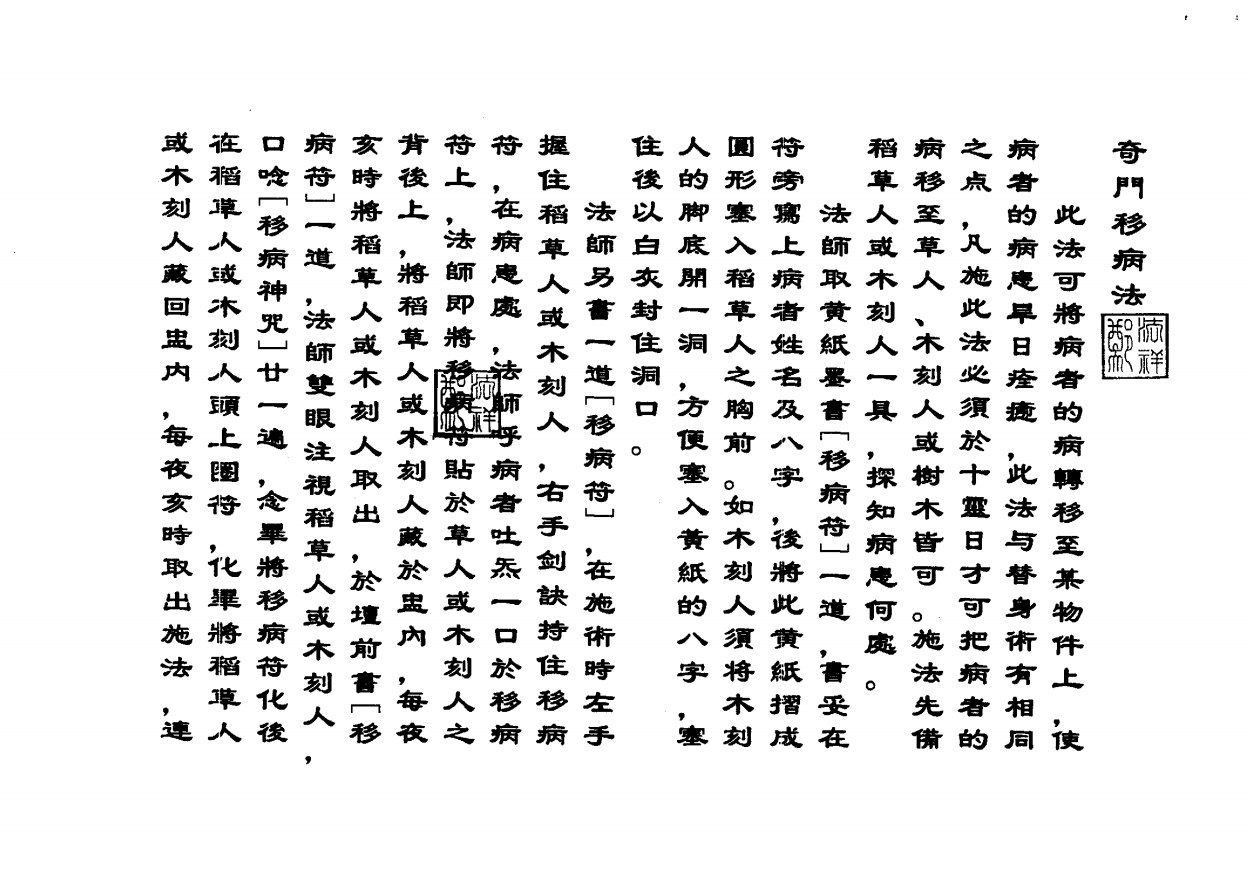 奇門移病法
此法可將病者的病轉移至某物件上,使
病者的病患早日痊癒,此法与替身術有相同
之点,凡施此法必須於十靈日才可把病者的
病移至草人、木刻人或樹木皆可。施法先備
稻草人或木刻人一具,探知病患何處。
法師取黄紙墨書「移病符」一道,書妥在
符旁寫上病者姓名及八字,後將此黄紙摺成
圓形塞入稻草人之胸前。如木刻人須将木刻
人的脚底開一洞,方便塞入黃紙的八字,塞
住後以白灰封住洞口。
法師另書一道「移病符」,在施術時左手
握住稻草人或木刻人,右手剑訣持住移病
符,在病患處,法師呼病者吐炁一口於移病
符上,法師即將移病符貼於草人或木刻人之
背後上,將稻草人或木刻人藏於盅內,每夜
亥時將稻草人或木刻人取出,於壇前書「移
病符」一道,法師雙眼注視稻草人或木刻人,
口唸「移病神咒」廿一遍,念畢將移病符化後
在稻草人或木刻人頭上圈符,化畢將稻草人
或木刻人藏回盅内,每夜亥時取出施法,連